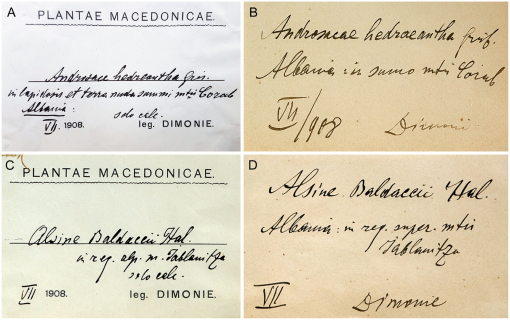 A
PLANTAE MACEDONICAE.
Androsace hedraeantha Gris.
in lapidosis et terra nuda summi mtis Corab
Albania:
solo calc.
VII. 1908.
leg. DIMONIE.
B
Androsace hedraeantha Gris.
Albania: in summo mtis Corab
VII/908
Dimonie
C
PLANTAE MACEDONICAE.
Alsine Baldaccii Hal.
in reg. alp. m. Jablanitza
solo calc.
VII 1908.
leg. DIMONIE.
D
Alsine Baldaccii Hal.
Albania: in reg. super. mtis
Jablanitza
VII
Dimonie